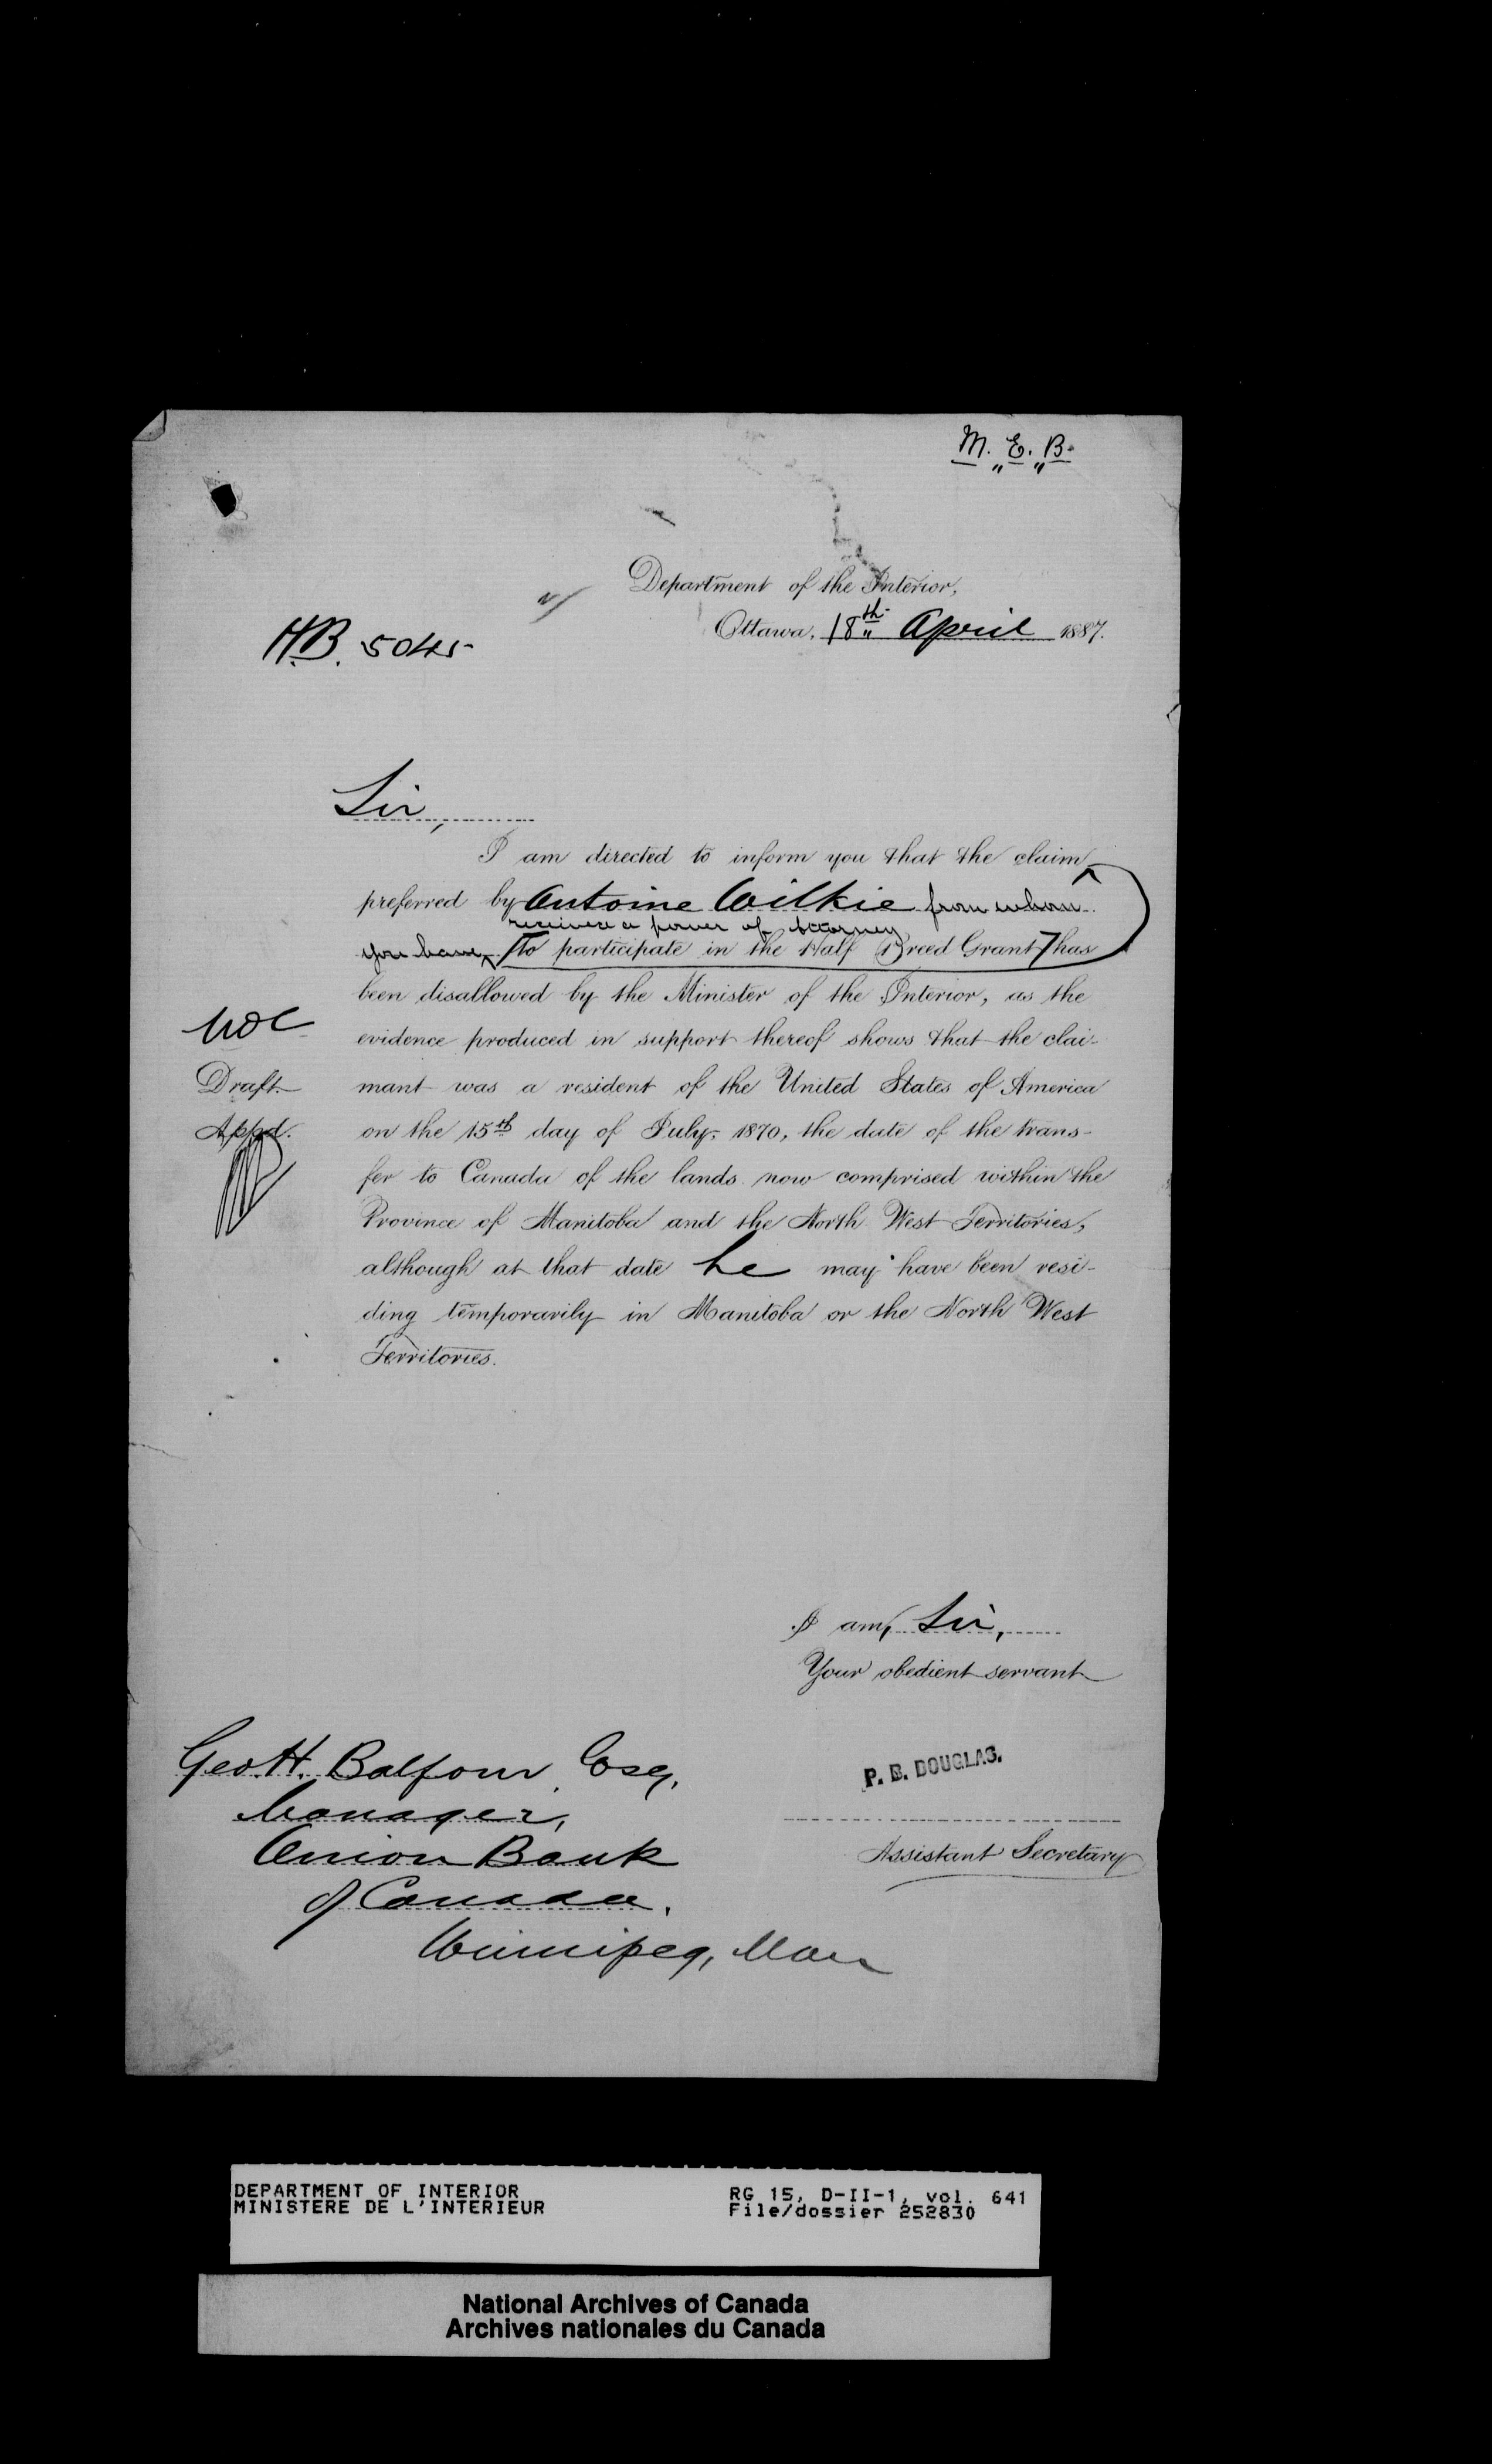 M. E. B.
Department of the Interior,
Ottawa, 18th April 1887.
H.B. 5045
Sir,
I am directed to inform you that the claim
preferred by Antoine Wilkie from whom
received a power of attorney
you have [to participate in the Half Breed Grant] has
been disallowed by the Minister of the Interior, as the
evidence produced in support thereof shows that the clai-
Draft
mant was a resident of the United States of America
Appd.
on the 15th day of July, 1870, the date of the trans-
fer to Canada of the lands now comprised within the
Province of Manitoba and the North West Territories,
although at that date he may have been resi-
ding temporarily in Manitoba or the North West
Territories.
I am, Sir,
Your obedient servant
P. B. DOUGLAS.
Assistant Secretary
Geo. H. Balfour Esq,
Manager,
Union Bank
of Canada,
Winnipeg, Man
DEPARTMENT OF INTERIOR
MINISTERE DE L'INTERIEUR
RG 15, D-II-1, vol. 641
File/dossier 252830
National Archives of Canada
Archives nationales du Canada